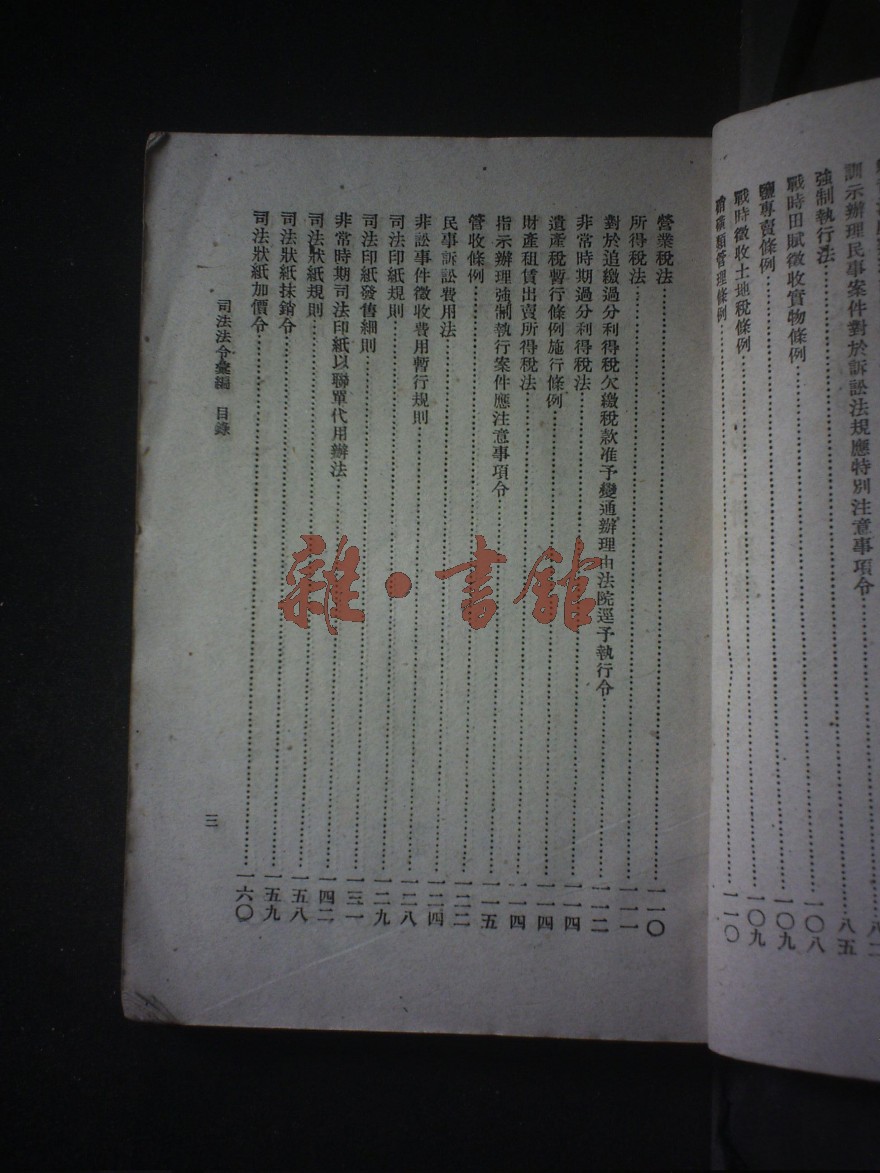 訓示辦理民事案件對於訴訟法規應特別注意事項令……八五
強制執行法……一〇八
戰時田賦徵收實物條例……一〇九
鹽專賣條例……一〇九
戰時徵收土地稅條例……一一〇
類管理條例
營業稅法……一一〇
所得稅法……一一一
對於追繳過分利得稅欠繳稅款准予變通辦理由法院逕予執行令……一一二
非常時期過分利得稅法……一一四
遺產稅暫行條例施行條例……一一四
財產租賃出賣所得稅法……一一四
指示辦理強制執行案件應注意事項令……一一五
管收條例……一二二
民事訴訟費用法……一二四
非訟事件徵收費用暫行規則……一二八
司法印紙規則……一二九
司法印紙發售細則……一三一
非常時期司法印紙以聯單代用辦法……一四二
司法狀紙規則……一五八
司法狀紙抹銷令……一五九
司法狀紙加價令……一六〇
司法法令彙編 目錄
三
雜·書館